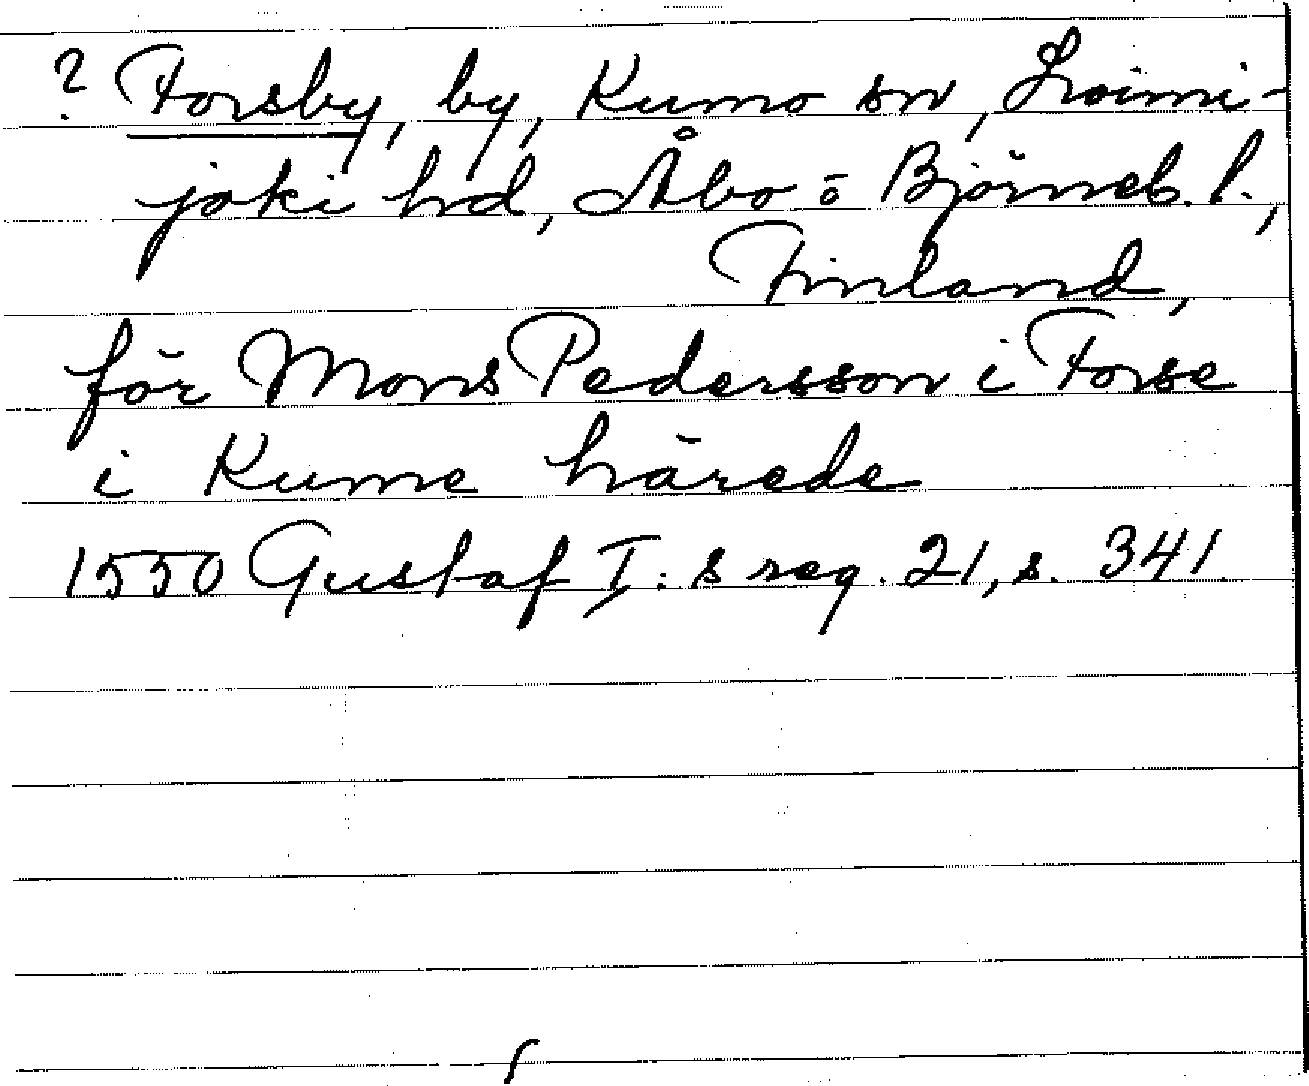 ? Forsby, by, Kumo sn, Loimi-
joki hd, Åbo o Björneb. l.,
Finland,
för Mons Pedersson i Forse
i Kume härede
1550 Gustaf I:s reg. 21, s. 341.